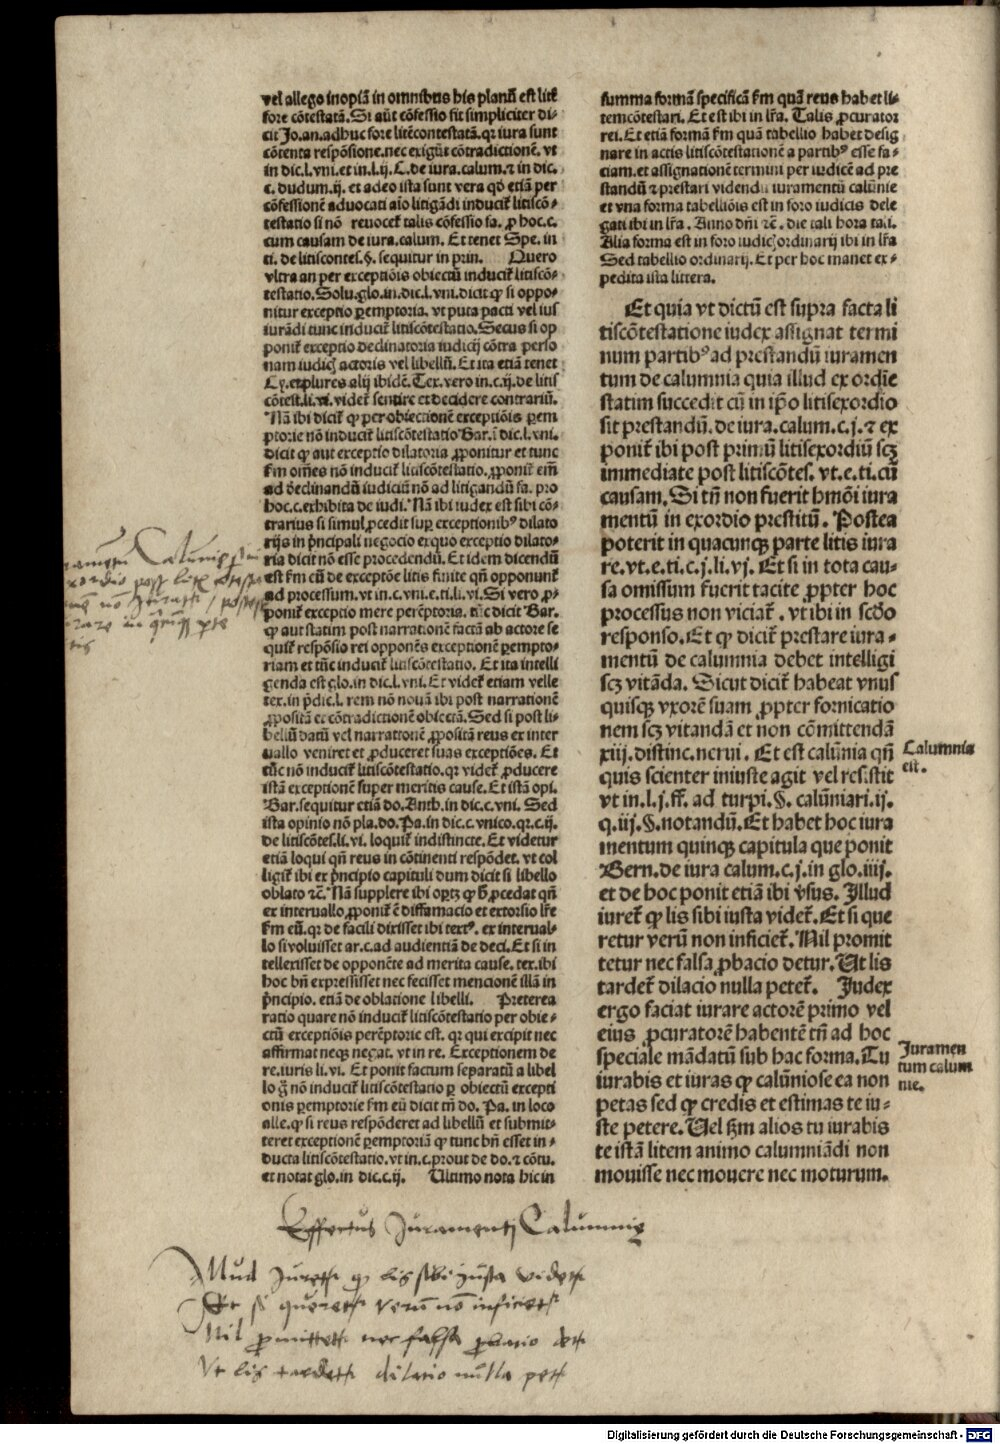 vel allego inopiā in omnibus his planū est litē
fore cōtestatā. Si aūt cōfessio fit simpliciter di-
cit Jo.an.adhuc fore litēcontestatā.qꝛ iura sunt
cōtenta respōsione.nec exigūt cōtradictionē. vt
in dic.l.vni.et in.l.ij. C.de iura.calum.⁊ in dic.
c. dudum.ij. et adeo ista sunt vera qď etiā per
cōfessionē aduocati aīo litigādi inducit̃ litiscō-
testatio si nō reuocet̃ talis cōfessio fa. ꝓ hoc.c.
cum causam de iura.calum. Et tenet Spe. in
ti. de litiscontes.§. sequitur in prin. Quero
vltra an per exceptiōis obiectū inducit̃ litiscō-
testatio.Solu.glo.in.dic.l.vni.dicit ꝙ si oppo-
nitur exceptio ꝑemptoria. vt puta pacti vel ius
iurādi tunc inducit̃ litiscōtestatio. Secus si op
ponit̃ exceptio declinatoria iudicij cōtra perso
nam iudicꝭ actoris vel libellū. Et ita etiā tenet
Cy. et plures alij ibidē. Tex. vero in.c.ij.de litis
cōtest.li.vi. videt̃ sentire et decidere contrariū.
Nā ibi dicit̃ ꝙ per obiectionē exceptiōis ꝑem
ptorie nō inducit̃ litiscōtestatio Bar.ī dic.l.vni.
dicit ꝙ aut exceptio dilatoria ꝓponitur et tunc
fm om̄es nō inducit̃ litiscōtestatio. ꝓponit̃ em̄
ad declinandū iudiciū nō ad litigandū fa. pro
hoc.c.exhibita de iudi. Nā ibi iudex est sibi cō-
trarius si simul ꝓcedit suꝑ exceptionibꝰ dilato
rijs in ṗncipali negocio ex quo exceptio dilato-
ria dicit nō esse procedendū. Et idem dicendū
est fm cū de exceptōe litis finite qn̄ opponunt̃
ad processum. vt in.c.vni.e.ti.li.vi. Si vero ꝓ-
ponit̃ exceptio mere perēptoria. tūc dicit Bar.
ꝙ aut statim post narrationē factā ab actore se
quit̃ respōsio rei opponēs exceptionē ꝑempto-
riam et tūc inducit̃ litiscōtestatio. Et ita intelli
genda est glo.in dic.l.vni. Et videt̃ etiam velle
tex.in ṗdic.l. rem nō nouā ibi post narrationē
ꝓpositā et cōtradictionē obiectā. Sed si post li-
bellū datū vel narrationē ꝓpositā reus ex inter
uallo veniret et ꝓduceret suas exceptiōes. Et
tūc nō inducit̃ litiscōtestatio.qꝛ videt̃ ꝓducere
istā exceptionē super meritis cause. Et istā opi.
Bar.sequitur etiā do. Anth.in dic.c.vni. Sed
ista opinio nō pla.do. Pa.in dic.c.vnico.qꝛ.c.ij.
de litiscōtes.li.vi. loquit̃ indistincte. Et videtur
etiā loqui qn̄ reus in cōtinenti respōdet. vt col
ligit̃ ibi ex ṗncipio capituli dum dicit si libello
oblato ⁊c̄. Nā supplere ibi oꝑtꝫ ꝙ ħ ꝓcedat qn̄
ex interuallo ꝓponit̃ ē diffamacio et extorsio lr̄e
fm eū.qꝛ de facili dixisset ibi textꝰ. ex interual-
lo si voluisset ar.c.ad audientiā de deci. Et si in
tellexisset de opponēte ad merita cause. tex.ibi
hoc bn̄ expressisset nec fecisset mencionē illā in
ṗncipio. etiā de oblatione libelli. Preterea
ratio quare nō inducit̃ litiscōtestatio per obie-
ctū exceptiōis perēptorie est. qꝛ qui excipit nec
affirmat neqꝫ negat. vt in re. Exceptionem de
re.iuris li.vi. Et ponit factum separatū a libel
lo g̊ nō inducit̃ litiscōtestatio ꝑ obiectū excepti
onis ꝑemptorie fm eū dicit tn̄ do. Pa. in loco
alle. ꝙ si reus respōderet ad libellū et submit-
teret exceptionē ꝑemptoriā ꝙ tunc bn̄ esset in-
ducta litiscōtestatio. vt in.c.prout de do.⁊ cōtu.
et notat glo.in dic.c.ij. Ultimo nota hic in
summa formā specificā fm quā reus habet li-
temcōtestari. Et est ibi in lr̄a. Talis ꝓcurator
rei. Et etiā formā fm quā tabellio habet desig
nare in actis litiscōtestationē a partibꝰ esse fa-
ctam.et assignationē termini per iudicē ad pre
standū ⁊ prestari videndū iuramentū calūnie
et vna forma tabelliōis est in foro iudicis dele
gati ibi in lr̄a. Anno dn̄i ⁊c̄. die tali hora tali.
Alia forma est in foro iudicꝭ ordinarij ibi in lr̄a
Sed tabellio ordinarij. Et per hoc manet ex-
pedita ista littera.
Et quia vt dictū est supra facta li
tiscōtestatione iudex assignat termi
num partibꝰ ad prestandū iuramen
tum de calumnia quia illud ex ordīe
statim succedit cū in ip̄o litisexordio
sit prestandū. de iura.calum.c.j.⁊ ex
ponit̃ ibi post primū litisexordiū scꝫ
immediate post litiscōtes. vt.e.ti.cū
causam. Si tn̄ non fuerit hmōi iura
mentū in exordio prestitū. Postea
poterit in quacunqꝫ parte litis iura
re.vt.e.ti.c.j.li.vj. Et si in tota cau-
sa omissum fuerit tacite ꝓpter hoc
processus non viciat̃. vt ibi in scďo
responso. Et ꝙ dicit̃ prestare iura-
mentū de calumnia debet intelligi
scꝫ vitāda. Sicut dicit̃ habeat vnus
quisqꝫ vxorē suam ꝓpter fornicatio
nem scꝫ vitandā et non cōmittendā
xiij.distinc.nerui. Et est calūnia qn̄
quis scienter iniuste agit vel resistit
vt in.l.j.ff. ad turpi.§. calūniari.ij.
q.iij.§.notandū. Et habet hoc iura
mentum quinqꝫ capitula que ponit
Bern.de iura calum.c.j.in glo.iiij.
et de hoc ponit etiā ibi v̄sus. Illud
iuret̃ ꝙ lis sibi iusta videt̃. Et si que
retur verū non inficiet̃. Nil promit
tetur nec falsa ꝓbacio detur. Ut lis
tardet̃ dilacio nulla petet̃. Judex
ergo faciat iurare actorē primo vel
eius ꝓcuratorē habentē tn̄ ad hoc
speciale mādatū sub hac forma. Tu
iurabis et iuras ꝙ calūniose ea non
petas sed ꝙ credis et estimas te iu-
ste petere. Uel sm alios tu iurabis
te istā litem animo calumniādi non
mouisse nec mouere nec moturum.
Calumnia
est.
Juramen
tum calum
nie.
Effectus Juramenti Calumnię
Illud Juretur ꝙ lis sibi iusta videtur
Et si queretur verum nō inficietur
Nil ꝓmittetur nec falsa ꝓbatio detur
Vt lis tardetur dilatio nulla petetur
Digitalisierung gefördert durch die Deutsche Forschungsgemeinschaft - DFG